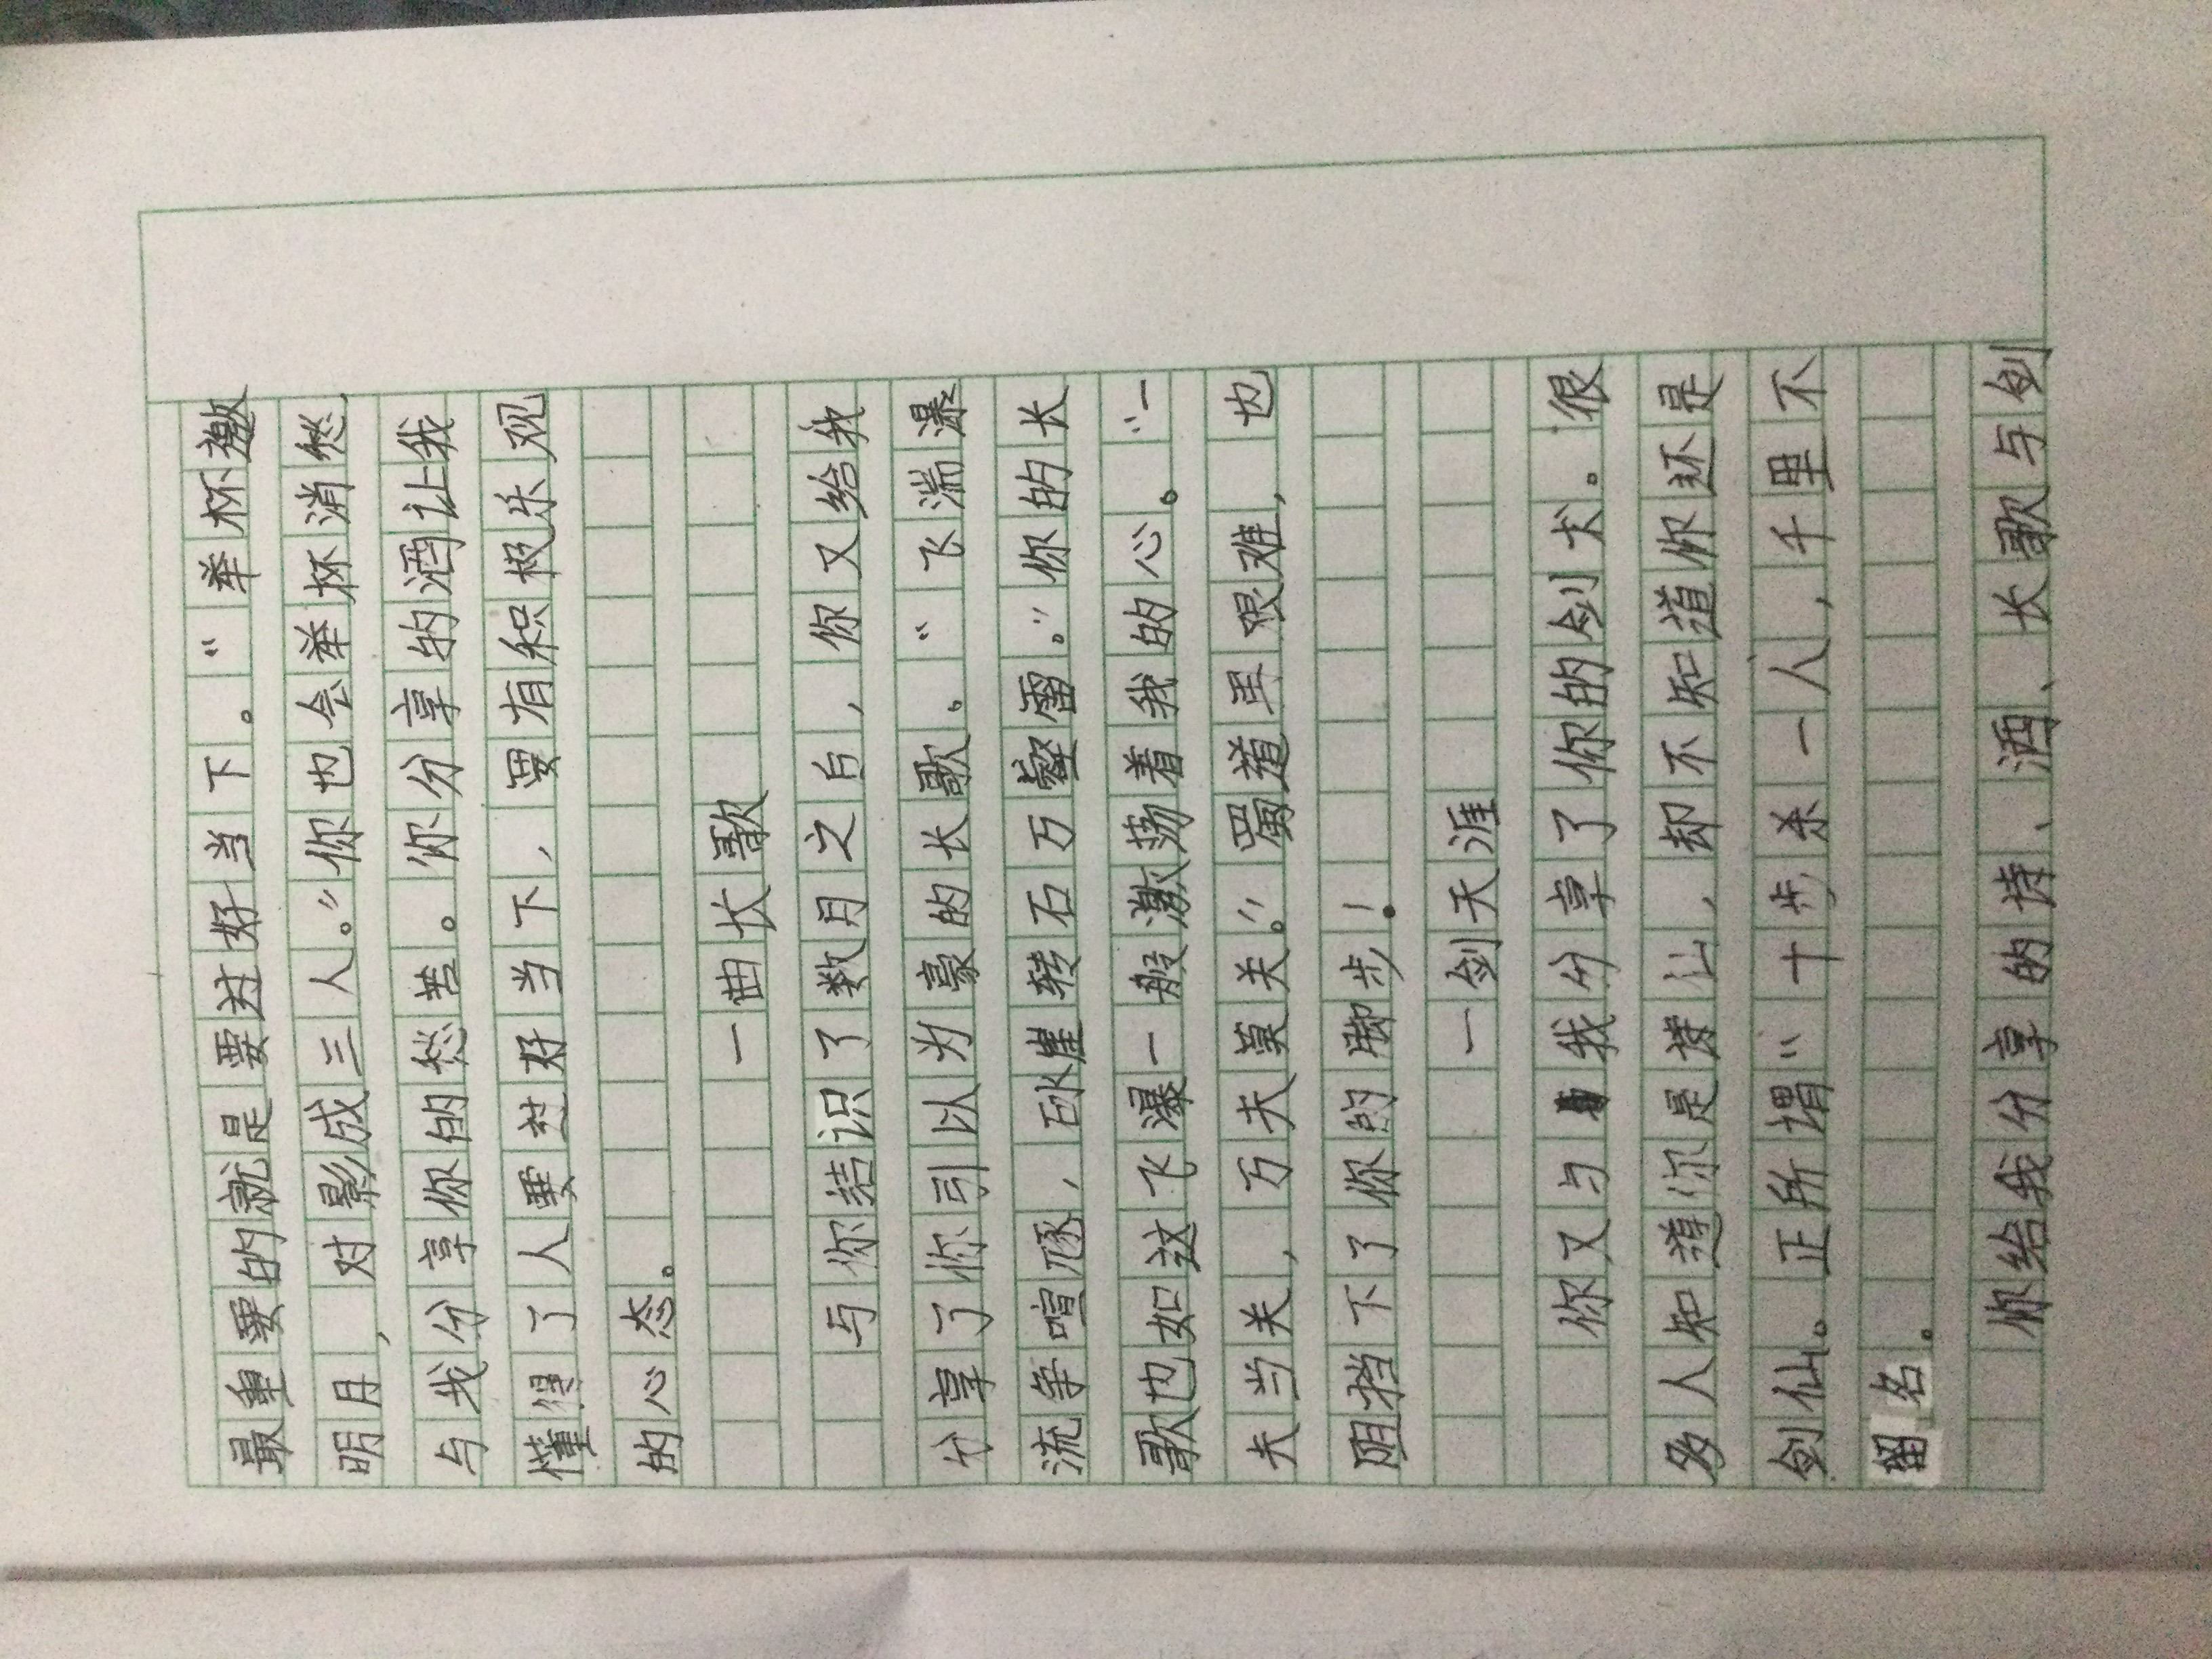 最重要的就是要过好当下。“举杯邀
明月，对影成三人。”你也会举杯消愁，
与我分享你的愁苦。你分享的酒让我
懂得了人要过好当下，要有积极乐观
的心态。
一曲长歌
与你结识了数月之后，你又给我
分享了你引以为豪的长歌。“飞湍瀑
流争喧豗，砯崖转石万壑雷。”你的长
歌也如这飞瀑一般激荡着我的心。“一
夫当关，万夫莫关。”蜀道里艰难，也
阻挡下了你的脚步！
一剑天涯
你又与我分享了你的剑术。很
多人知道你是诗仙，却不知道你还是
剑仙。正所谓“十步杀一人，千里不
留名。
你给我分享的诗、酒、长歌与剑